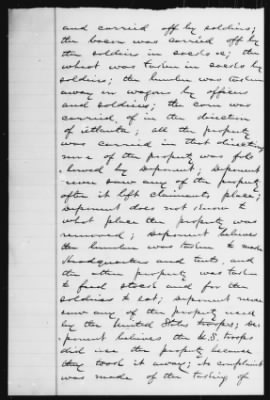 and carried off by soldiers;
the bacon was carried off by
the soldiers in sacks &c; the
wheat was taken in sacks by
soldiers; the lumber was taken
away in wagons by officers
and soldiers; the corn was
carried of in the direction
of Atlanta; all the property
was carried in that direction
none of the property was fol-
lowed by deponent; deponent
never saw any of the property
after it left claimants place;
deponent does not know to
what place the property was
removed; deponent believes
the lumber was taken to make
Headquarters and tents, and
the other property was taken
to feed stock and for the
soldiers to eat; deponent never
saw any of the property used
by the United States troops; de-
ponent believes the U.S. troops
did use the property because
they took it away; no complaint
was made of the taking of